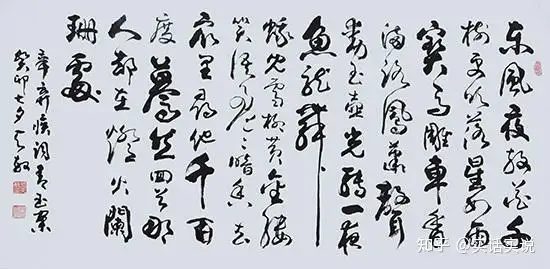 东风夜放花千
树更吹落星如雨
寳马雕车香
满路凤箫聲
动玉壶光转一夜
鱼龙舞
蛾儿雪柳黄金缕
笑语盈盈暗香去
众里寻他千百
度蓦然回首那
人却在灯火阑
珊处
辛弃疾词青玉案
癸卯七夕
知乎 @实话实说